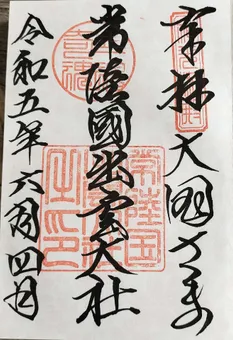 奉拝 大国さま
常陸國出雲大社
令和五年六月四日
常陸国